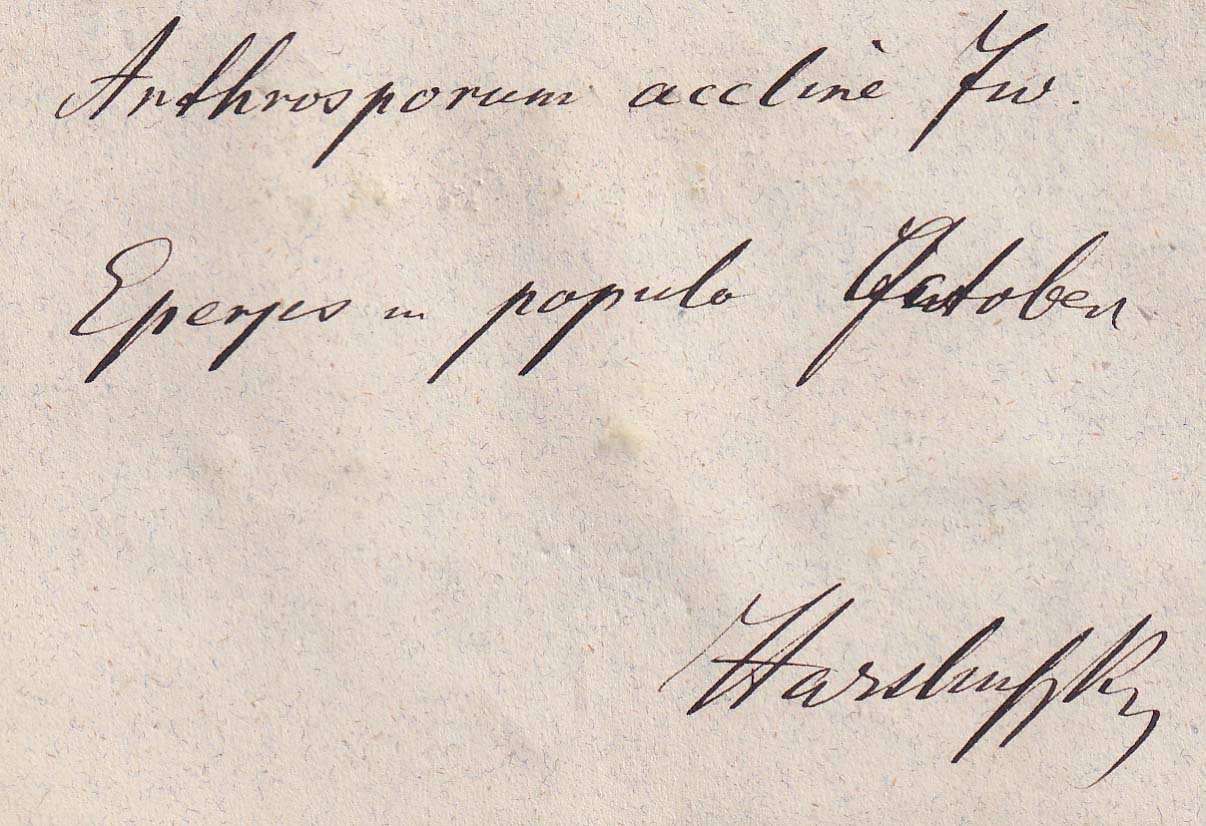 Arthrosporum accline Fw.
Eperjes in populo October
Hazslinszky